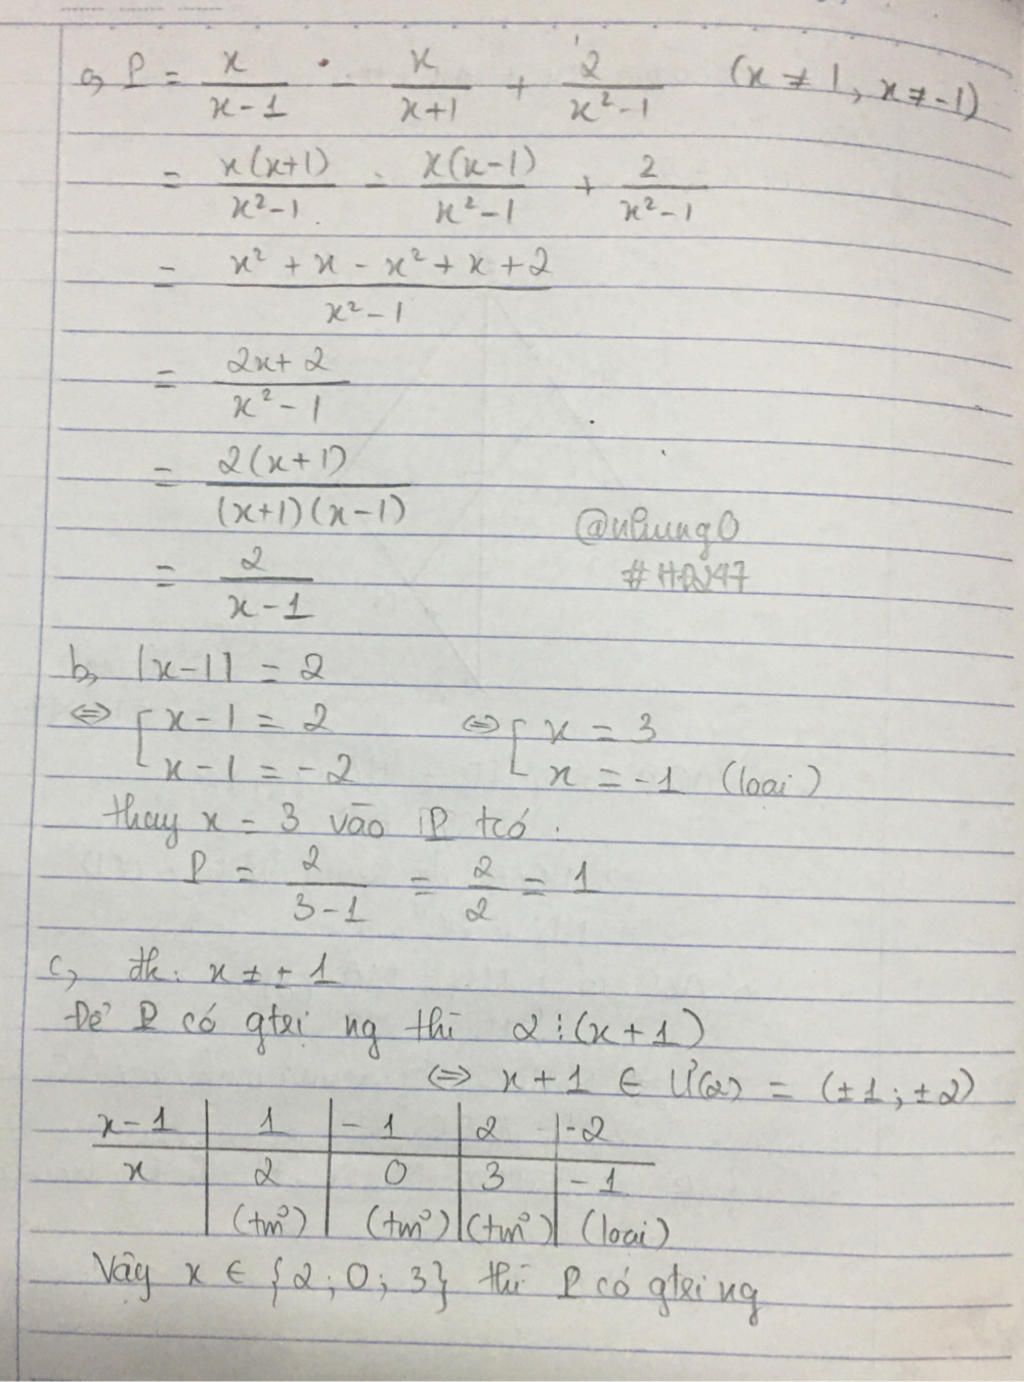 a, P = x/(x-1) - x/(x+1) + 2/(x²-1) (x ≠ 1, x ≠ -1)
= x(x+1)/(x²-1) - x(x-1)/(x²-1) + 2/(x²-1)
= (x² + x - x² + x + 2)/(x²-1)
= (2x+2)/(x²-1)
= 2(x+1)/((x+1)(x-1))
@nhung0
= 2/(x-1)
b, |x-1| = 2
⇔ [ x-1 = 2 ⇔ [ x = 3
x-1 = -2 x = -1 (loại)
thay x = 3 vào P tcó :
P = 2/(3-1) = 2/2 = 1
c, đk: x ≠ ± 1
Để P có gtrị ng thì 2 ⋮ (x+1)
⇔ x+1 ∈ Ư(2) = (±1; ±2)
x-1 | 1 | -1 | 2 | -2
x | 2 | 0 | 3 | -1
(tm) | (tm) | (tm) | (loại)
Vậy x ∈ {2; 0; 3} thì P có gtrị ng